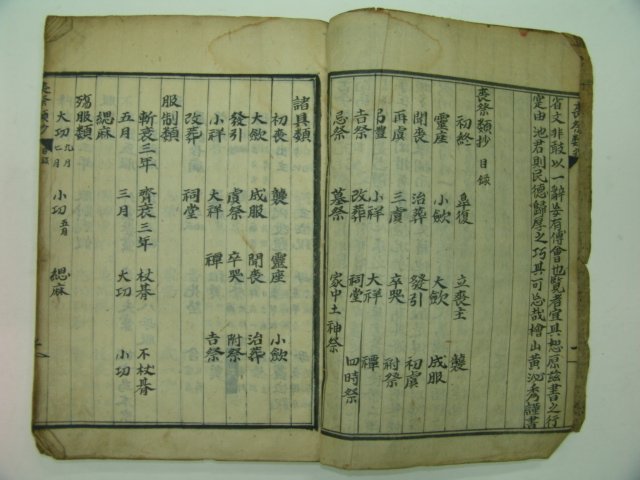 喪祭類抄
省文非敢以一辭妄有傅會也覽者宜具想原玆書之行
寔由池君則民德歸厚之巧其可忘哉檜山黃泌秀謹書
喪祭類抄目錄
初終 皐復 立喪主 襲
靈座 小歛 大歛 成服
聞喪 治葬 發引 初虞
再虞 三虞 卒哭 祔祭
吊 小祥 大祥 禫
吉祭 改葬 祠堂 四時祭
忌祭 墓祭 家中土神祭
諸具類
初喪 襲 靈座 小歛
大歛 成服 聞喪 治葬
發引 虞祭 卒哭 附祭
小祥 大祥 禫 吉祭
改葬 祠堂
服制類
斬衰三年 齊衰三年 杖朞 不杖朞
五月 三月 大功 小功
緦麻
殤服類
大功九月七月 小功五月 緦麻
喪祭類抄